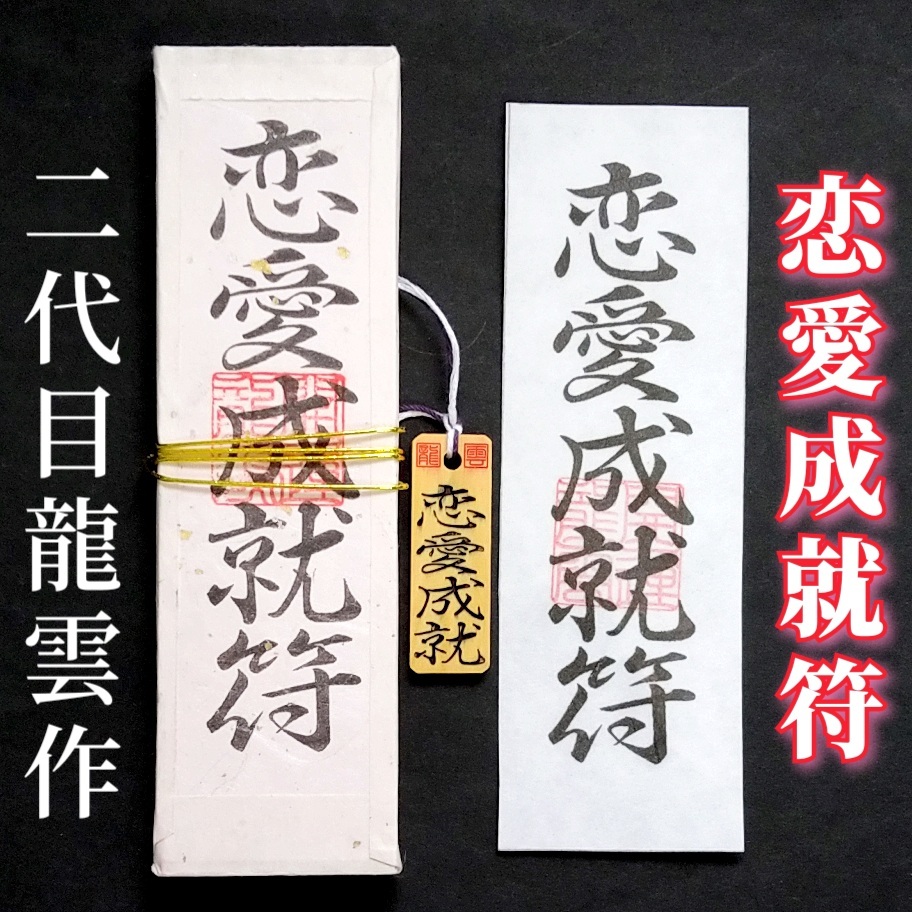 恋愛成就符
恋愛成就符
龍雲
恋愛成就
恋愛成就符
二代目龍雲作